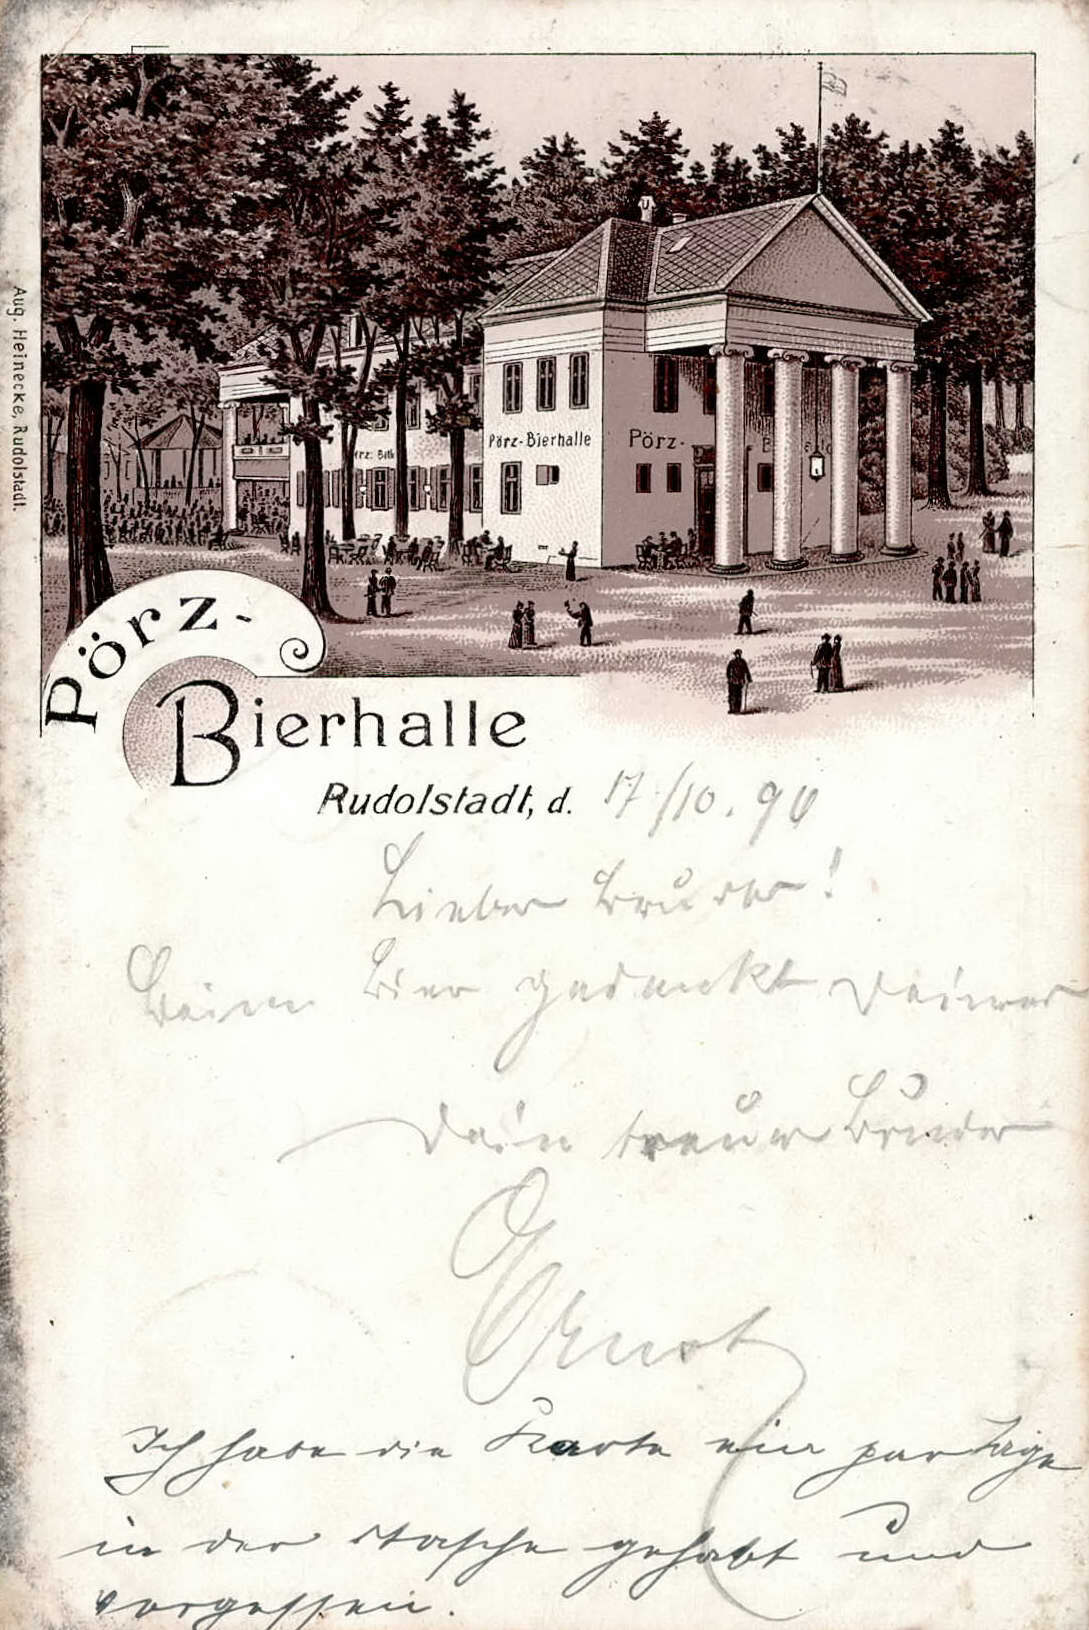 Aug. Heinecke, Rudolstadt.
Pörz-Bierhalle
Pörz-
Pörz-
Bierhalle
Rudolstadt, d. 17/10. 96
Lieber Bruder!
Beim Bier gedenkt Deiner
Dein treuer Bruder
Ernst
Ich habe die Karte ein par Tage
in der Tasche gehabt und
vergessen.